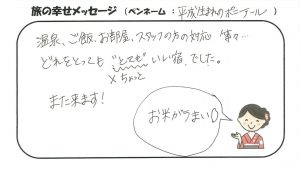 旅の幸せメッセージ（ペンネーム：平成生まれのボニアール）
温泉、ご飯、お部屋、スタッフの方の対応 等々…
どれをとっても "とても" いい宿でした。
×ちょっと
また来ます！
お米がうまい